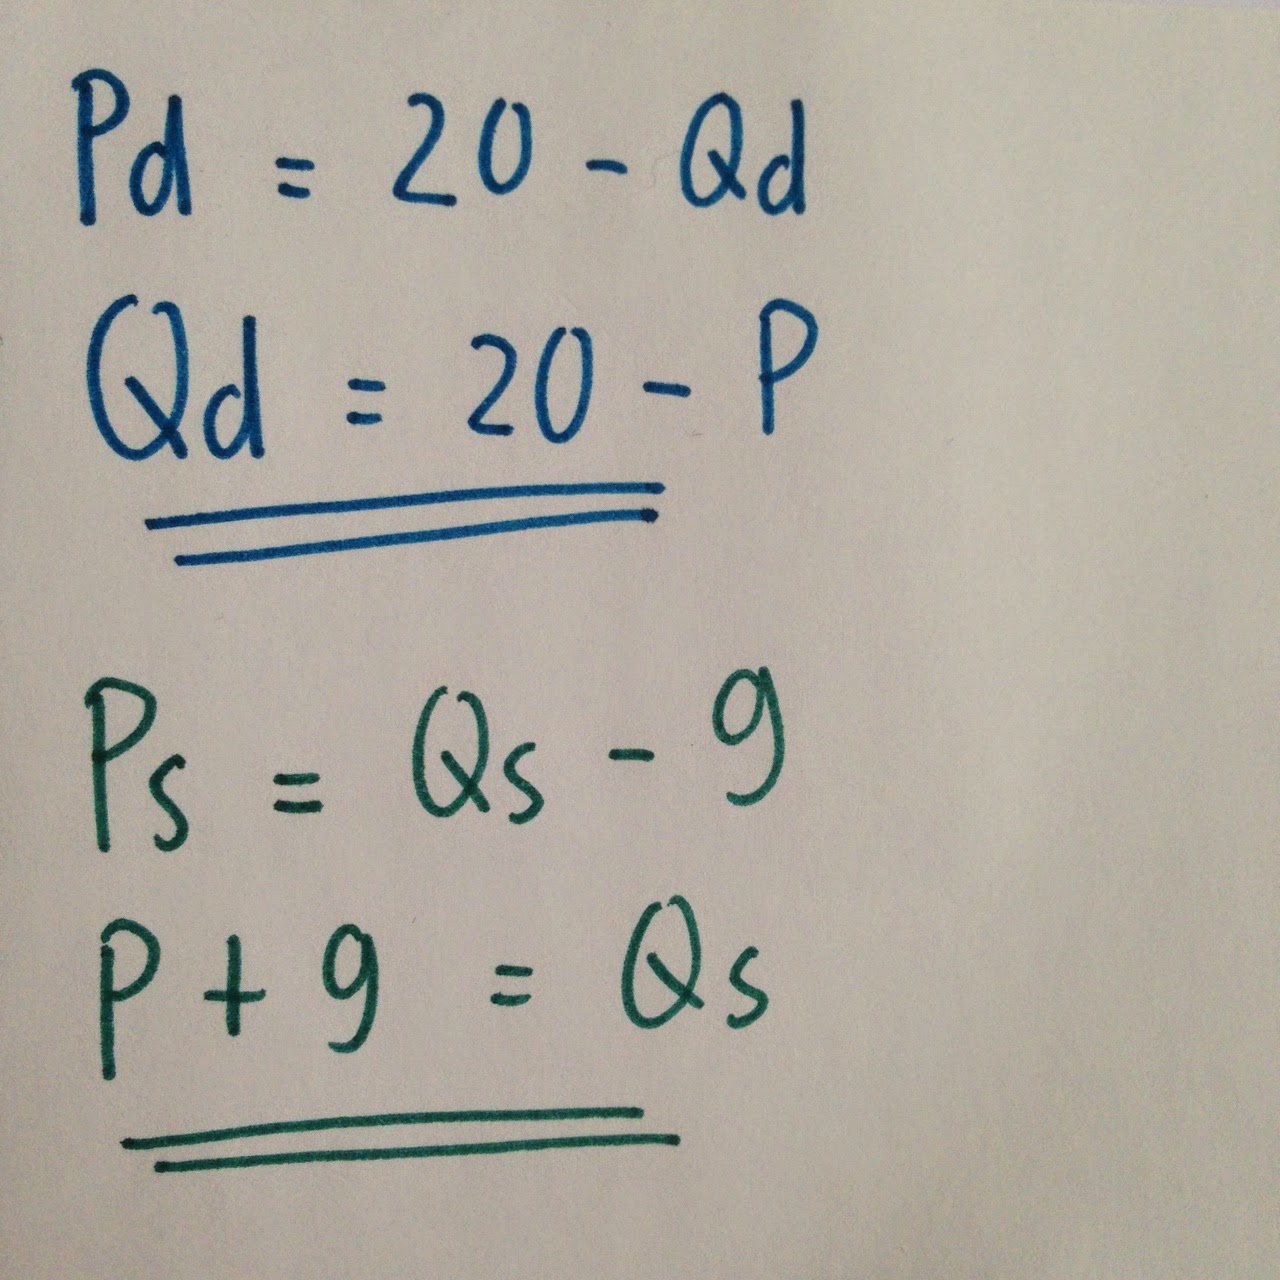 Pd = 20 - Qd
Qd = 20 - P
Ps = Qs - 9
P + 9 = Qs